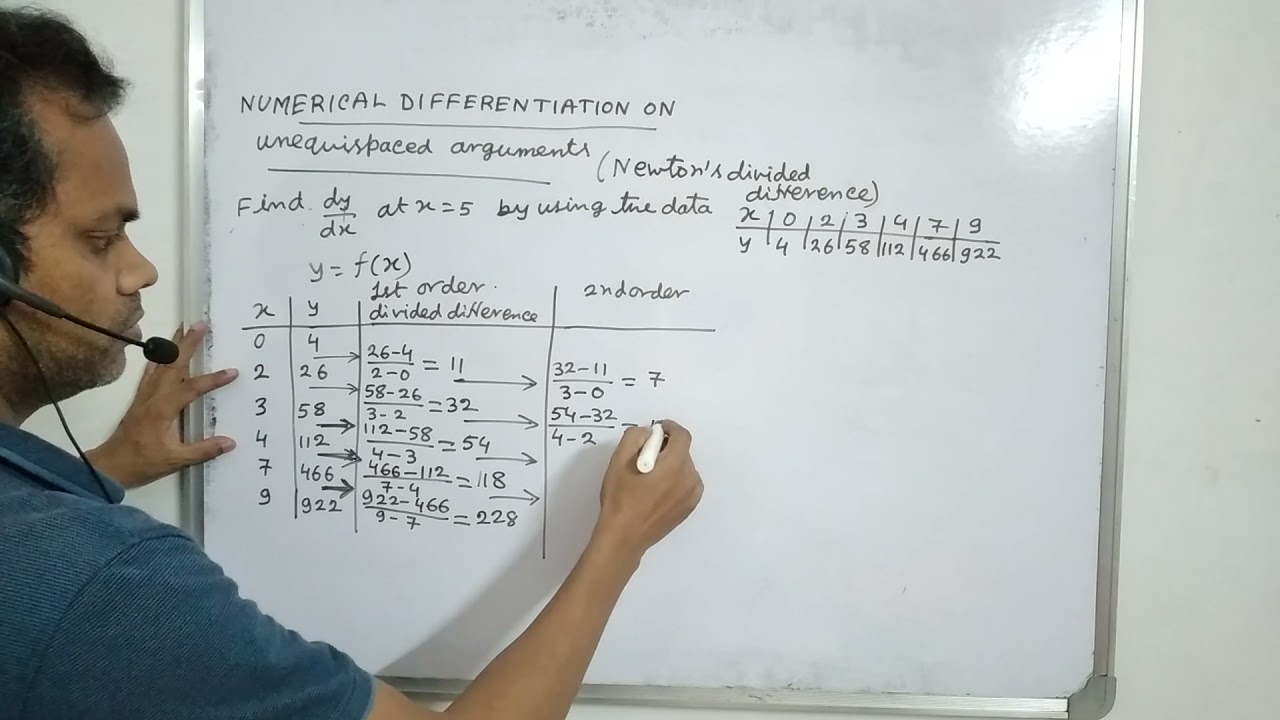 NUMERICAL DIFFERENTIATION ON
unequispaced arguments
(Newton's divided
difference)
Find dy/dx at x=5 by using the data
x | 0 | 2 | 3 | 4 | 7 | 9
y | 4 | 26 | 58 | 112 | 466 | 922
y = f(x)
x | y | 1st order divided difference | 2nd order
0 | 4
2 | 26
3 | 58
4 | 112
7 | 466
9 | 922
26-4/2-0 = 11
58-26/3-2 = 32
112-58/4-3 = 54
466-112/7-4 = 118
922-466/9-7 = 228
32-11/3-0 = 7
54-32/4-2 =